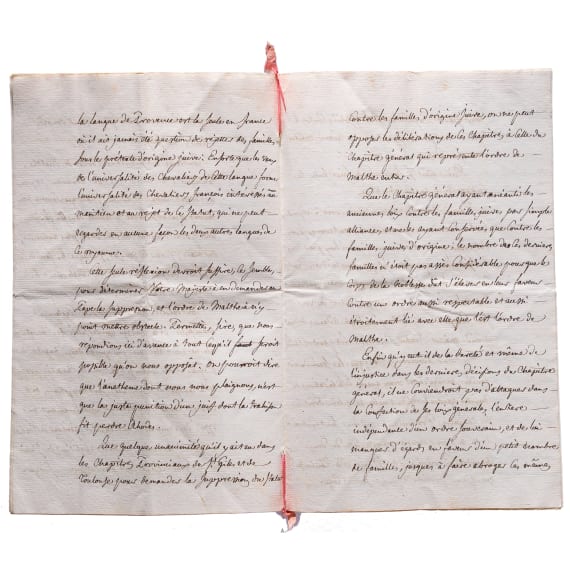 la langue de Provence est la seule en france
où il ait jamais été question de rejetter des familles,
sous le pretexte d'origine juive. Ensorte que le vœu
de l'universalité des Chevaliers de cette langue forme
l'universalité des Chevaliers françois interessés au
maintien et au rejet de ce Statut, qui ne peut
regarder en aucune façon les deux autres langues de
ce royaume.
Cette seule reflexion devroit suffire, ce semble,
pour déterminer Votre Majesté à en demander au
Pape la suppression, et l'ordre de Malthe à n'y
point mettre obstacle. Permettés, Sire, que nous
repondions ici d'avance à tout ce qu'il seroit
possible qu'on nous opposat. On pourroit dire
que l'anatheme dont nous nous plaignons, n'est
que la juste punition d'un juif dont la trahison
fit perdre Rhodes.
Que quelque unanimité qu'il y ait eu dans
les Chapitres Provinciaux de St. Gilles et de
Toulouse pour demander la suppression du Statut
Contre les familles d'origine Juive, on ne peut
opposer les délibérations de ces Chapitres à celle du
Chapitre général qui représente l'ordre de
Malthe entier.
Que le Chapitre général ayant anéanti les
anciennes loix contre les familles juives par simple
alliance, et ne les ayant conservées que contre les
familles juives d'origine; le nombre de ces dernieres
familles n'étoit pas assés considérable pour que le
Corps de la Noblesse dut s'élever en leur faveur
Contre un ordre aussi respectable et aussi
étroitement lié avec elle que l'est l'ordre de
Malthe.
Enfin qu'y eut il de la dureté et même de
l'injustice dans les dernieres décisions du Chapitre
général, il ne conviendroit pas d'attaquer dans
la confection de ses loix générales, l'entiere
indépendance d'un ordre souverain, et de lui
manquer d'égards en faveur d'un petit nombre
de familles, jusques à faire abroger les mêmes